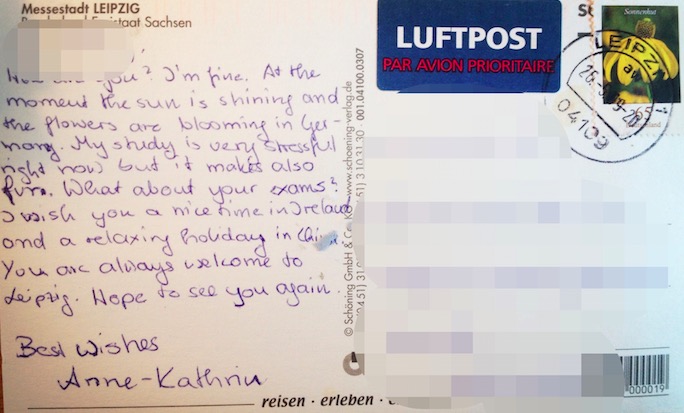 Messestadt LEIPZIG
Freistaat Sachsen
How are you? I'm fine. At the
moment the sun is shining and
the flowers are blooming in Ger-
many. My study is very stressful
right now but it makes also
fun. What about your exams?
I wish you a nice time in Ireland
and a relaxing holiday in China
You are always welcome to
Leipzig. Hope to see you again.
Best Wishes
Anne-Kathrin
reisen · erleben ·
© Schöning GmbH & Co. KG · www.schoening-verlag.de
001.04100.0307
LUFTPOST
PAR AVION PRIORITAIRE
Sonnenhut
LEIPZI
04109
000019